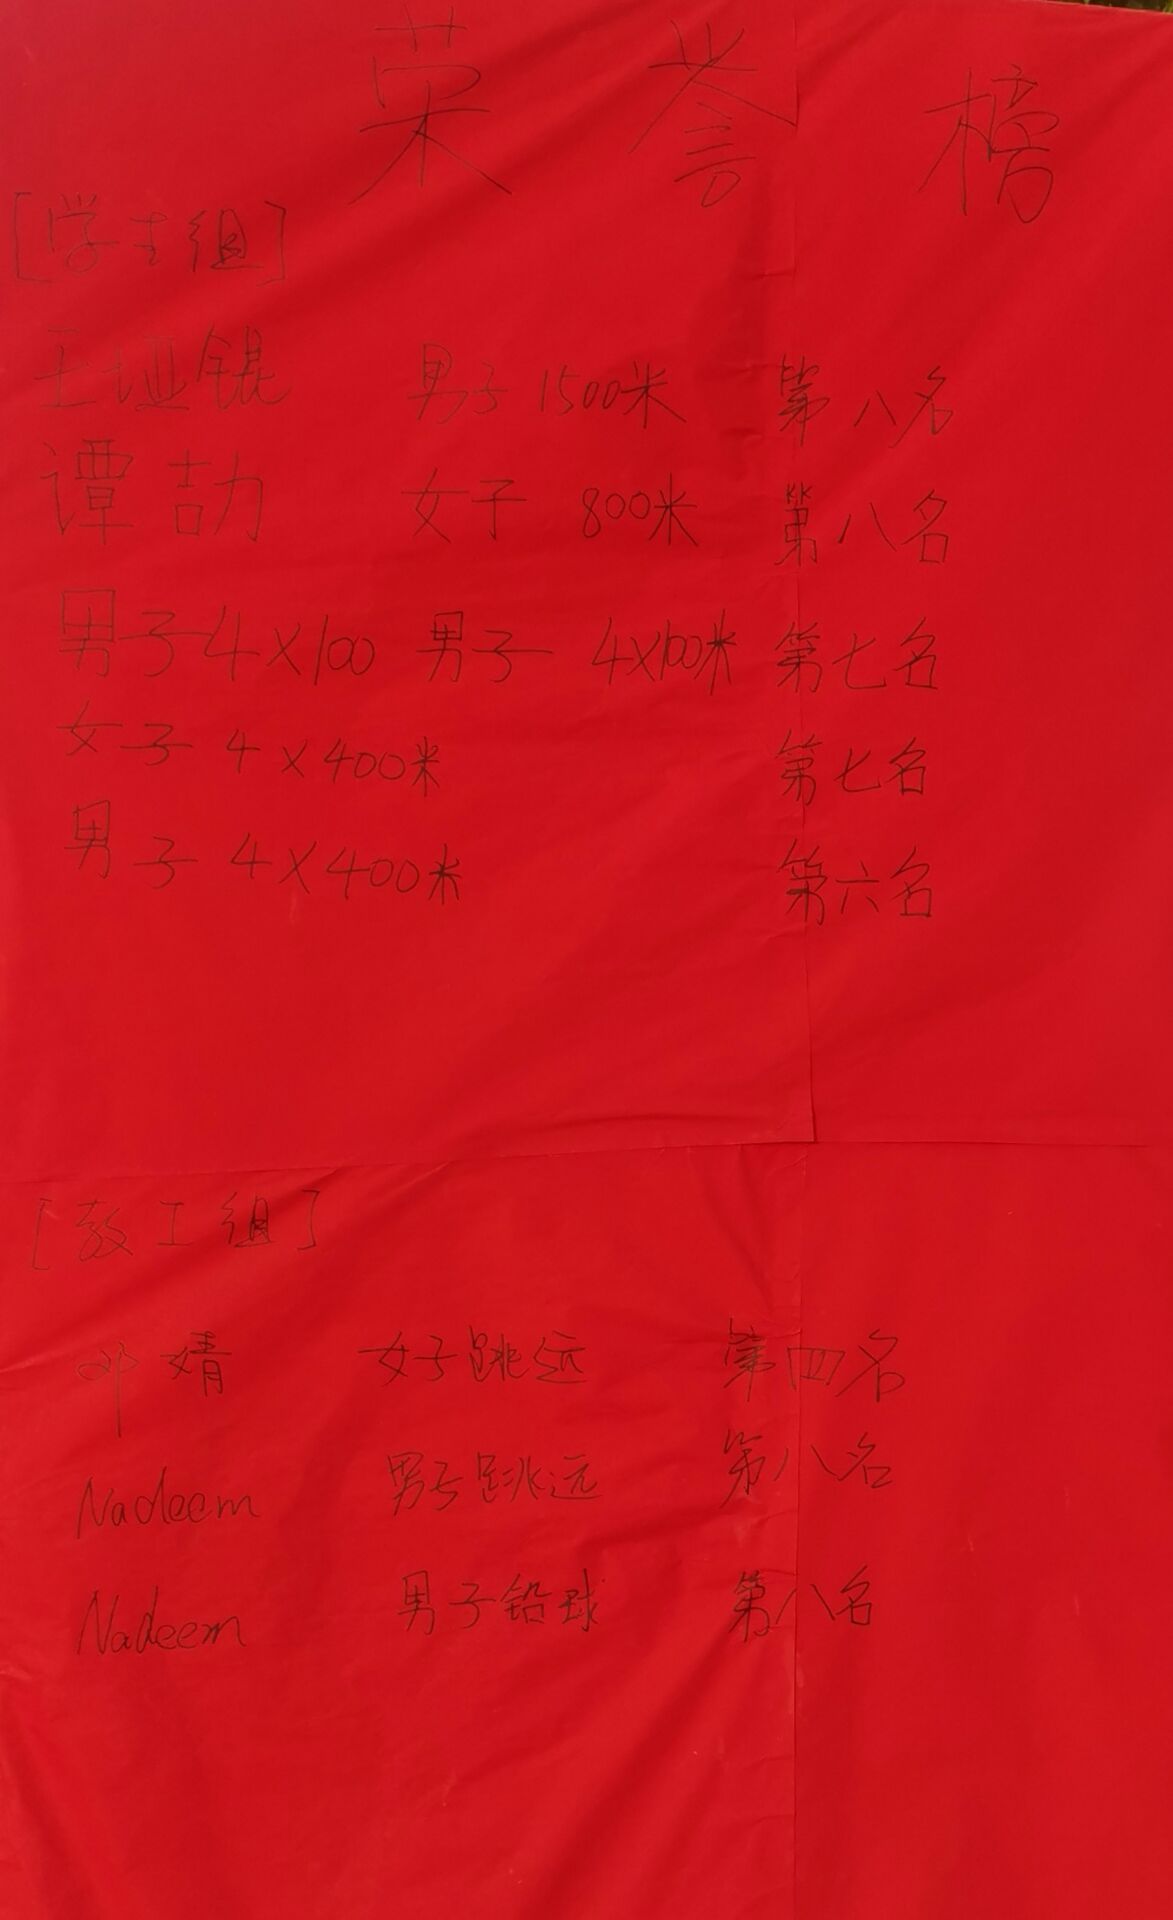 荣誉榜
[学生组]
王垭锟 男子 1500米 第八名
谭劼 女子 800米 第八名
男子4×100 男子 4×100米 第七名
女子 4×400米 第七名
男子 4×400米 第六名
[教工组]
邓婧 女子跳远 第四名
Nadeem 男子跳远 第八名
Nadeem 男子铅球 第八名